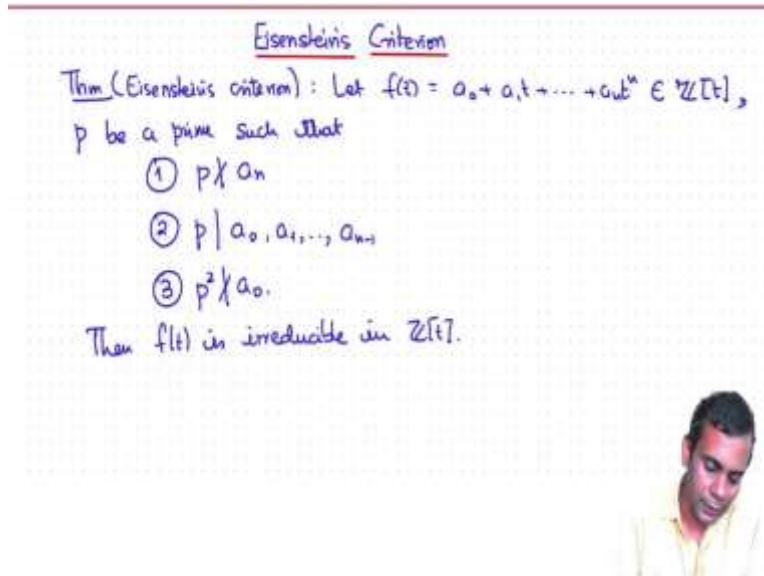 Eisenstein's Criterion
Thm (Eisenstein's criterion) : Let f(t) = a₀ + a₁t + ... + aₙtⁿ ∈ ℤ[t],
p be a prime such that
① p∤aₙ
② p | a₀, a₁, ..., aₙ₋₁
③ p²∤a₀.
Then f(t) is irreducible in ℤ[t].